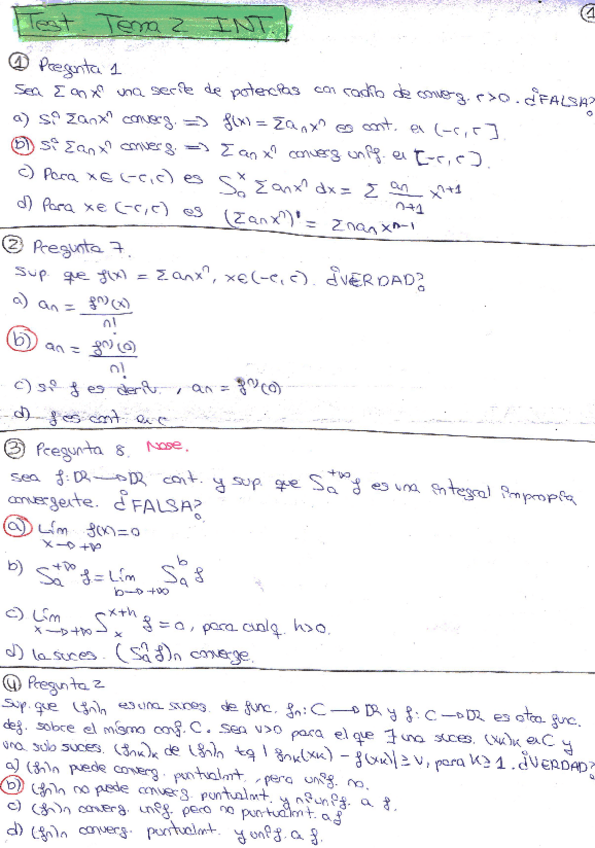 Test Tema 2 INT.
1
① Pregunta 1
Sea Σanxⁿ una serie de potencias con radio de converg. r>0. ¿FALSA?
a) Si Σanxⁿ converg. => f(x) = Σanxⁿ es cont. en (-r, r].
b) Si Σanxⁿ converg. => Σanxⁿ converg unif. en [-r, r].
c) Para x∈(-r, r) es ∫ₐˣ Σanxⁿ dx = Σ an/(n+1) xⁿ⁺¹
d) Para x∈(-r, r) es (Σanxⁿ)' = Σnanxⁿ⁻¹
② Pregunta 7.
Sup. que f(x) = Σanxⁿ, x∈(-r, r). ¿VERDAD?
a) an = fⁿ⁾(x)/n!
b) an = fⁿ⁾(0)/n!
c) si f es deriv., an = fⁿ⁾(0)
d) f es cont. en r
③ Pregunta 8. Nose.
Sea f: ℝ → ℝ cont. y sup. que ∫ₐ^{+∞} f es una integral impropia
convergente. ¿FALSA?
a) Lím f(x)=0
x→+∞
b) ∫ₐ^{+∞} f = Lím ∫ₐᵇ f
b→+∞
c) Lím ∫ₓ^{x+h} f = 0, para cualq. h>0.
x→+∞
d) la suces. (∫ₐⁿ f)n converge.
④ Pregunta 2
Sup. que (fn)n es una suces. de func. fn: C → ℝ y f: C → ℝ es otra func.
def. sobre el mismo conj. C. Sea v>0 para el que ∃ una suces. (xk)k en C y
una subsuces. (fnk)k de (fn)n tq |fnk(xk) - f(xk)| ≥ v, para k≥1. ¿VERDAD?
a) (fn)n puede converg. puntualmt., pero unif. no.
b) (fn)n no puede converg. puntualmt. y ni unif. a f.
c) (fn)n converg. unif. pero no puntualmt. a f
d) (fn)n converg. puntualmt. y unif. a f.